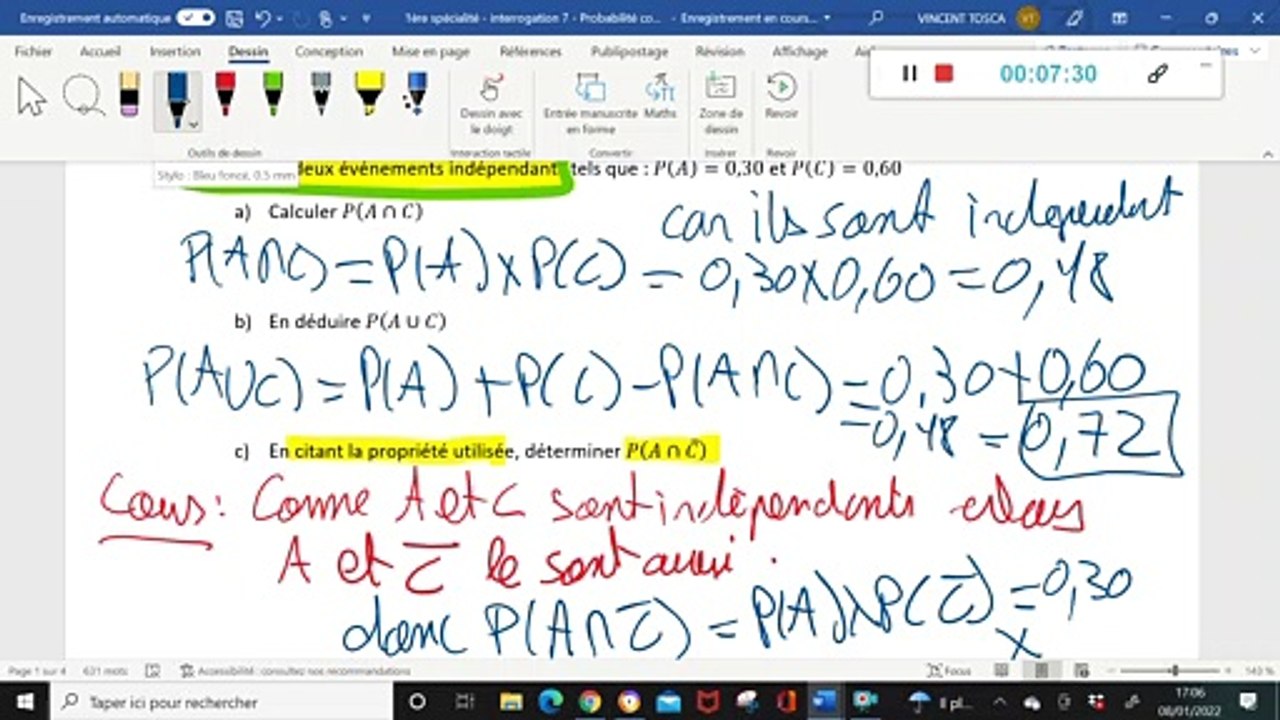 Enregistrement automatique
1ère spécialité - Interrogation 7 - Probabilité co... - Enregistrement en cours...
VINCENT TOSCA
Fichier Accueil Insertion Dessin Conception Mise en page Références Publipostage Révision Affichage
00:07:30
Dessin avec le doigt
Entrée manuscrite en forme
Maths
Zone de dessin
Revoir
Outils de dessin
Interaction tactile
Convertir
Insérer
Revoir
Stylo : Bleu foncé, 0.5 mm
deux événements indépendants tels que : P(A) = 0,30 et P(C) = 0,60
a) Calculer P(A ∩ C)
car ils sont independent
P(A∩C) = P(A) x P(C) = 0,30x0,60 = 0,48
b) En déduire P(A ∪ C)
P(A∪C) = P(A) + P(C) - P(A∩C) = 0,30 + 0,60
-0,48 = 0,72
c) En citant la propriété utilisée, déterminer P(A ∩ C̄)
Cours : Comme A et C sont indépendants alors
A et C̄ le sont aussi .
donc P(A∩C̄) = P(A)xP(C̄) = 0,30
x
Page 1 sur 4 631 mots Accessibilité : consultez nos recommandations Focus 140 %
Taper ici pour rechercher
Il pl...
17:06
08/01/2022